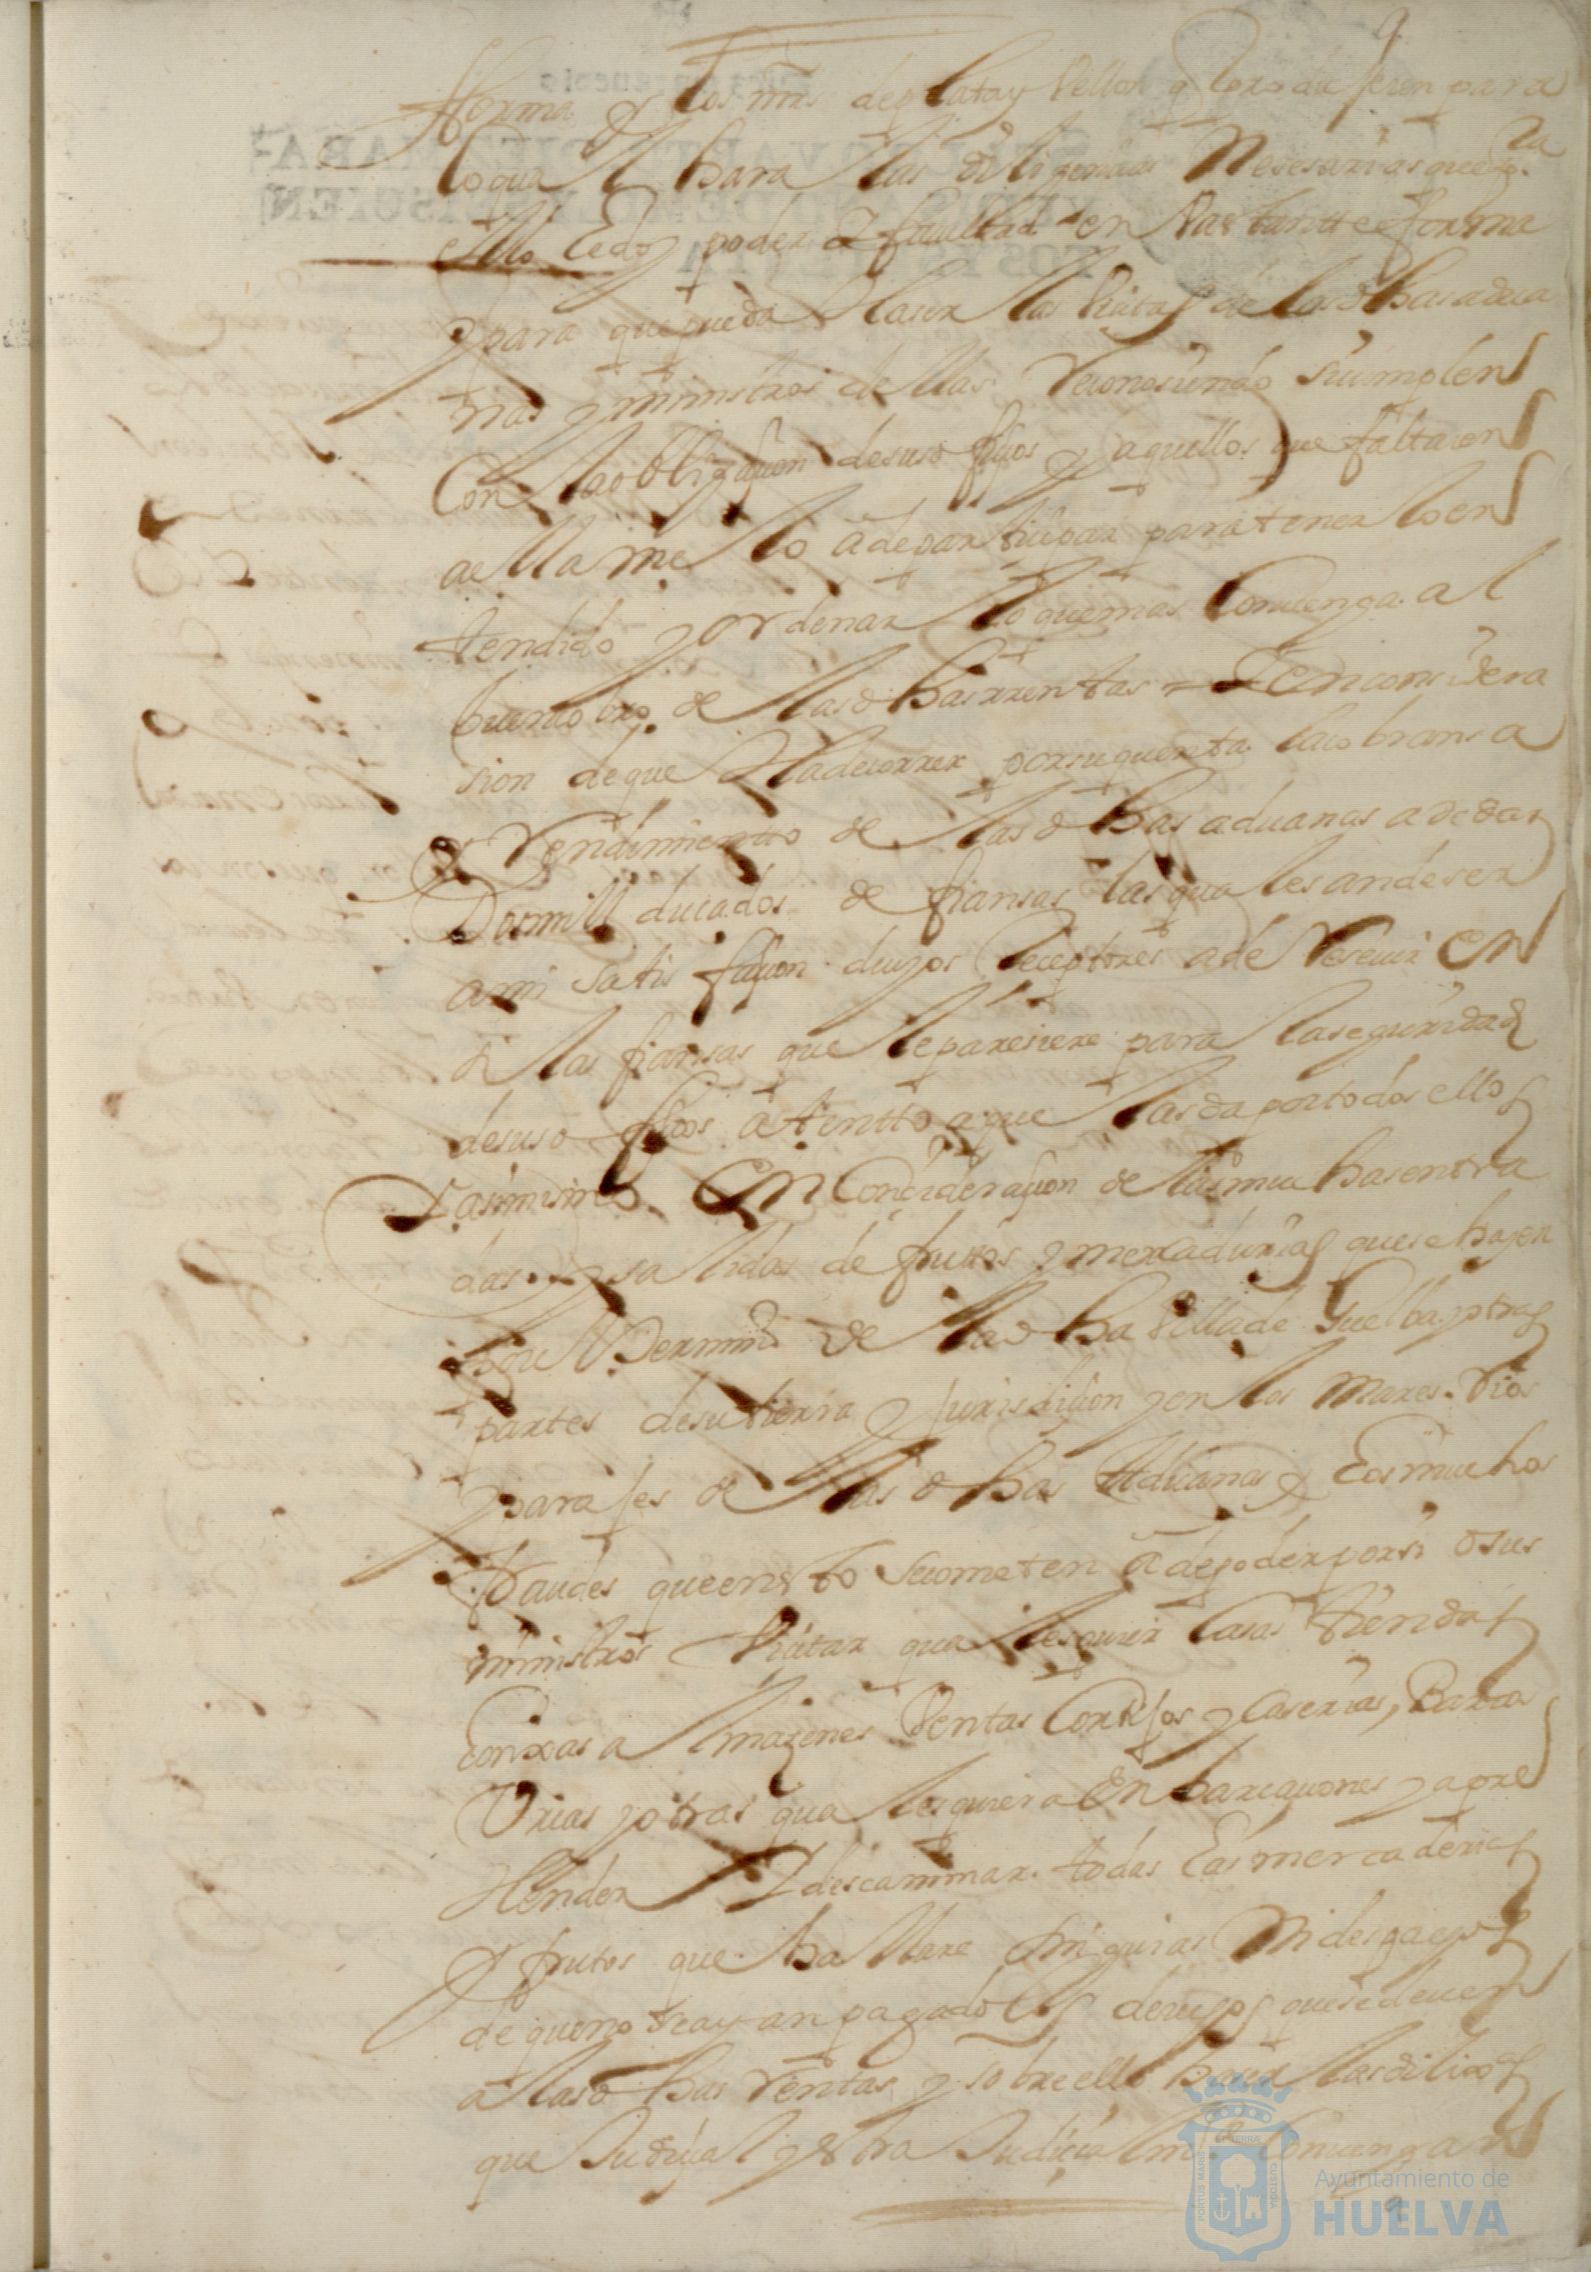 9
forma y los mrs de plata y vellon q Produ seren para
lo qual hara las diligencias Nesesarias que p.ª
ello le doy poder & facultad en bastantte forma
y para que pueda haser las visitas de las dhas adua
nas y ministros dellas Reconosiendo si cumplen
Con la obligaçion de sus ofiçios y aquellos que faltaren
a ella me lo a de partisipar para tenerlo en
tendido y ordenar lo que mas Convenga al
buen cobro de las dhas rrentas = Y en considera
sion de que ha de correr por su quenta la cobransa
y Rendimientto de las dhas aduanas a de dar
Dos mill ducados de fiansas las quales an de ser
a mi satisfaçion cuyos Reçeptores a de Resevir en
las fiansas que le paresiere para la seguridad
de sus ofiçios atentto a que las da por todos ellos
Y asimismo En Consideraçion de las muchas entra
das y salidas de fruttos y mercadurias que se hasen
por el termino de la dha villa de Guelba y otras
partes de su tierra y Jurisdiçion y en los Mares Rios
y parajes de las dhas Aduanas y Los muchos
fraudes que en esto se cometen a de poder por si o sus
ministros visitar qualesquier casas tiendas
lonxas almazenes Ventas Cortijos y Caserias, Barcos
Urcas y otras qualesquiera Enbarcaçiones y apre
hender y descaminar todas Las mercaderias
y frutos que hallare sin guias Ni despachos
de que no se ayan pagado los derechos que se deven
a las dhas Rentas y sobre ello haser las dilixas
que Judiçial y extra Judiçialmte Convengan
Ayuntamiento de
HUELVA